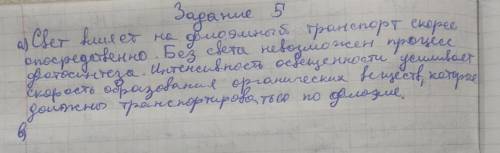 Задание 5
а) Свет влияет на флоэмный транспорт скорее
опосредственно. Без света невозможен процесс
фотосинтеза. Интенсивность освещенности усиливает
скорость образования органических веществ, которые
должны транспортироваться по флоэме.
в)